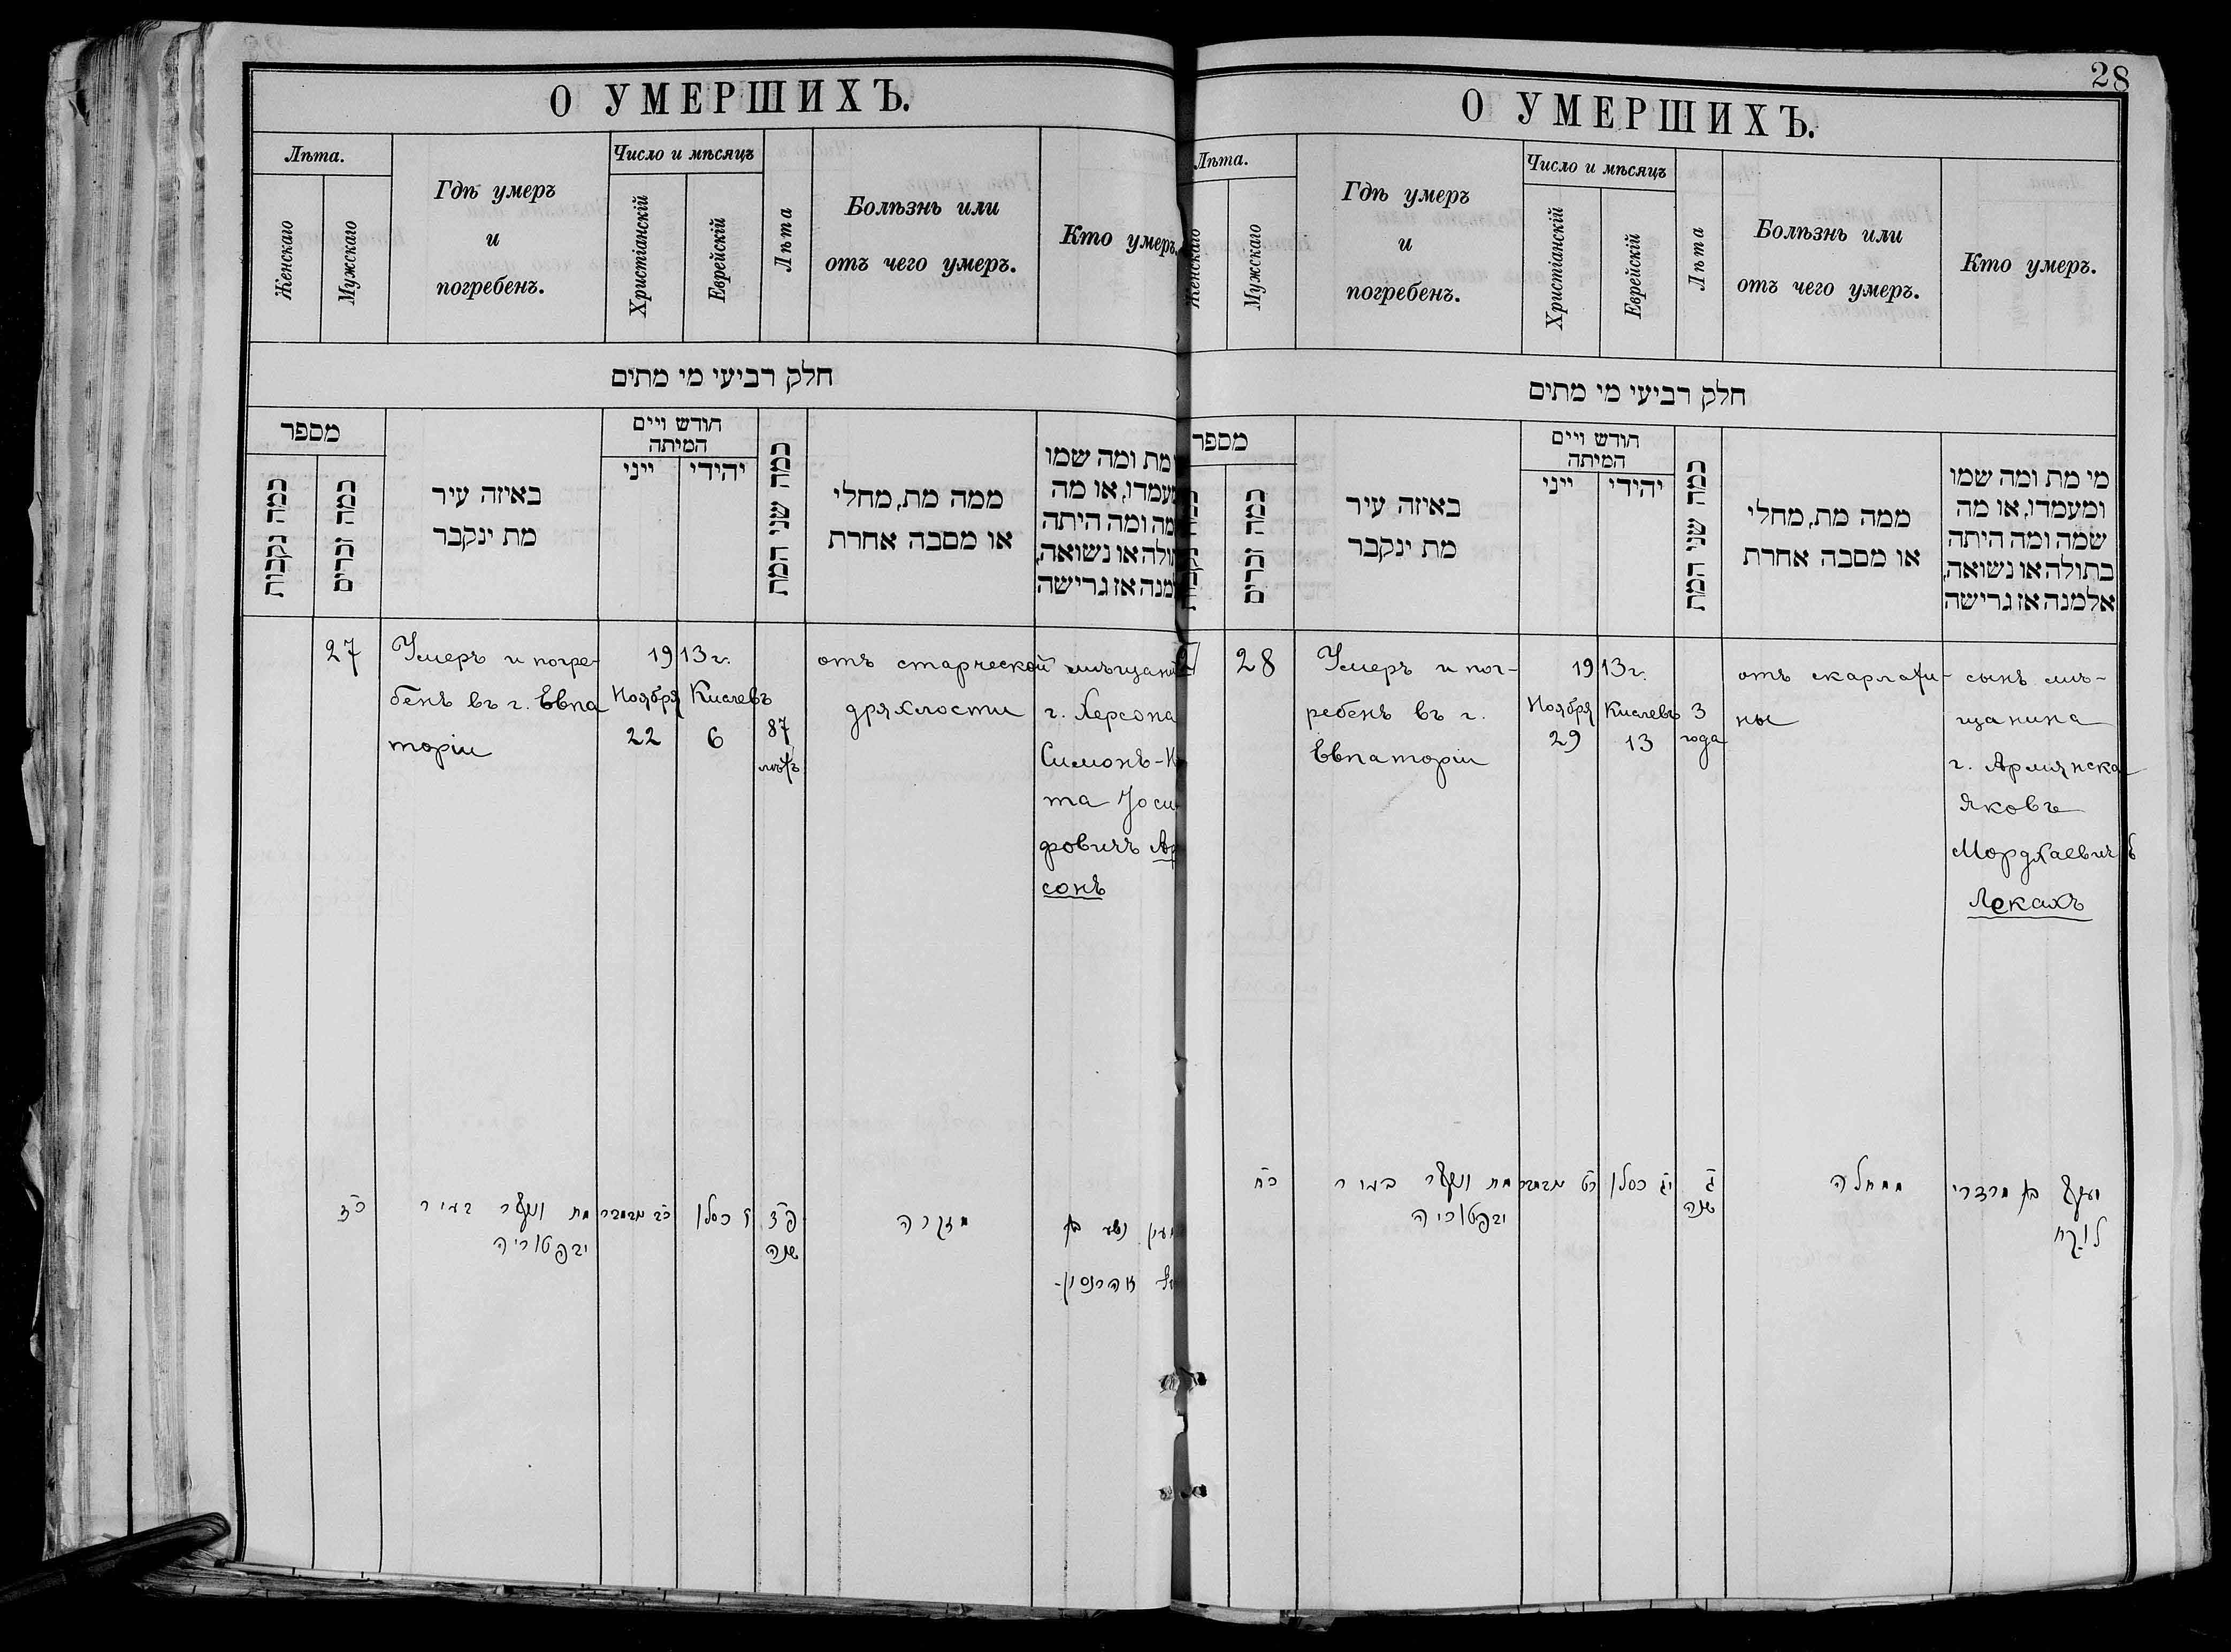 О УМЕРШИХЪ.
Лѣта.
Женскаго
Мужскаго
Гдѣ умеръ
и
погребенъ.
Число и мѣсяцъ
Христіанскій
Еврейскій
Лѣта
Болѣзнь или
отъ чего умеръ.
Кто умеръ.
חלק רביעי מי מתים
מספר
כמה נקבות
כמה זכרים
באיזה עיר
מת ינקבר
חודש ויים
המיתה
ייני
יהידי
כמה שני המת
ממה מת, מחלי
או מסבה אחרת
מת ומה שמו
או מה
ומה היתה
או נשואה,
אז גרישה
27
Умеръ и погре-
бенъ въ г. Евпа
торіи
1913 г.
Ноября Кислевъ
22 6
87
лѣтъ
отъ старческой
дряхлости
г. Херсона
Симонъ-
та Іоси-
фовичъ
сонъ
כ״ז
מת ונקבר בעיר
יבפטוריה
כ״ב נובמבר
ו כסלו
פ״ז
שנה
מזקנה
בן
אהרנסון-
28
О УМЕРШИХЪ.
Лѣта.
Женскаго
Мужскаго
Гдѣ умеръ
и
погребенъ.
Число и мѣсяцъ
Христіанскій
Еврейскій
Лѣта
Болѣзнь или
отъ чего умеръ.
Кто умеръ.
חלק רביעי מי מתים
מספר
כמה זכרים
באיזה עיר
מת ינקבר
חודש ויים
המיתה
ייני
יהידי
כמה שני המת
ממה מת, מחלי
או מסבה אחרת
מי מת ומה שמו
ומעמדו, או מה
שמה ומה היתה
בתולה או נשואה,
אלמנה אז גרישה
28
Умеръ и пог-
ребенъ въ г.
Евпаторіи
1913 г.
Ноября Кислевъ
29 13
3
года
отъ скарлати-
ны
сынъ мѣ-
щанина
г. Армянска
Яковъ
Мордхаевичъ
Лекахъ
כ״ח
מת ונקבר בעיר
יבפטוריה
כ״ט נובמבר
י״ג כסלו
ג׳
שנה
ממחלה
יעקב בן מרדכי
לוקח